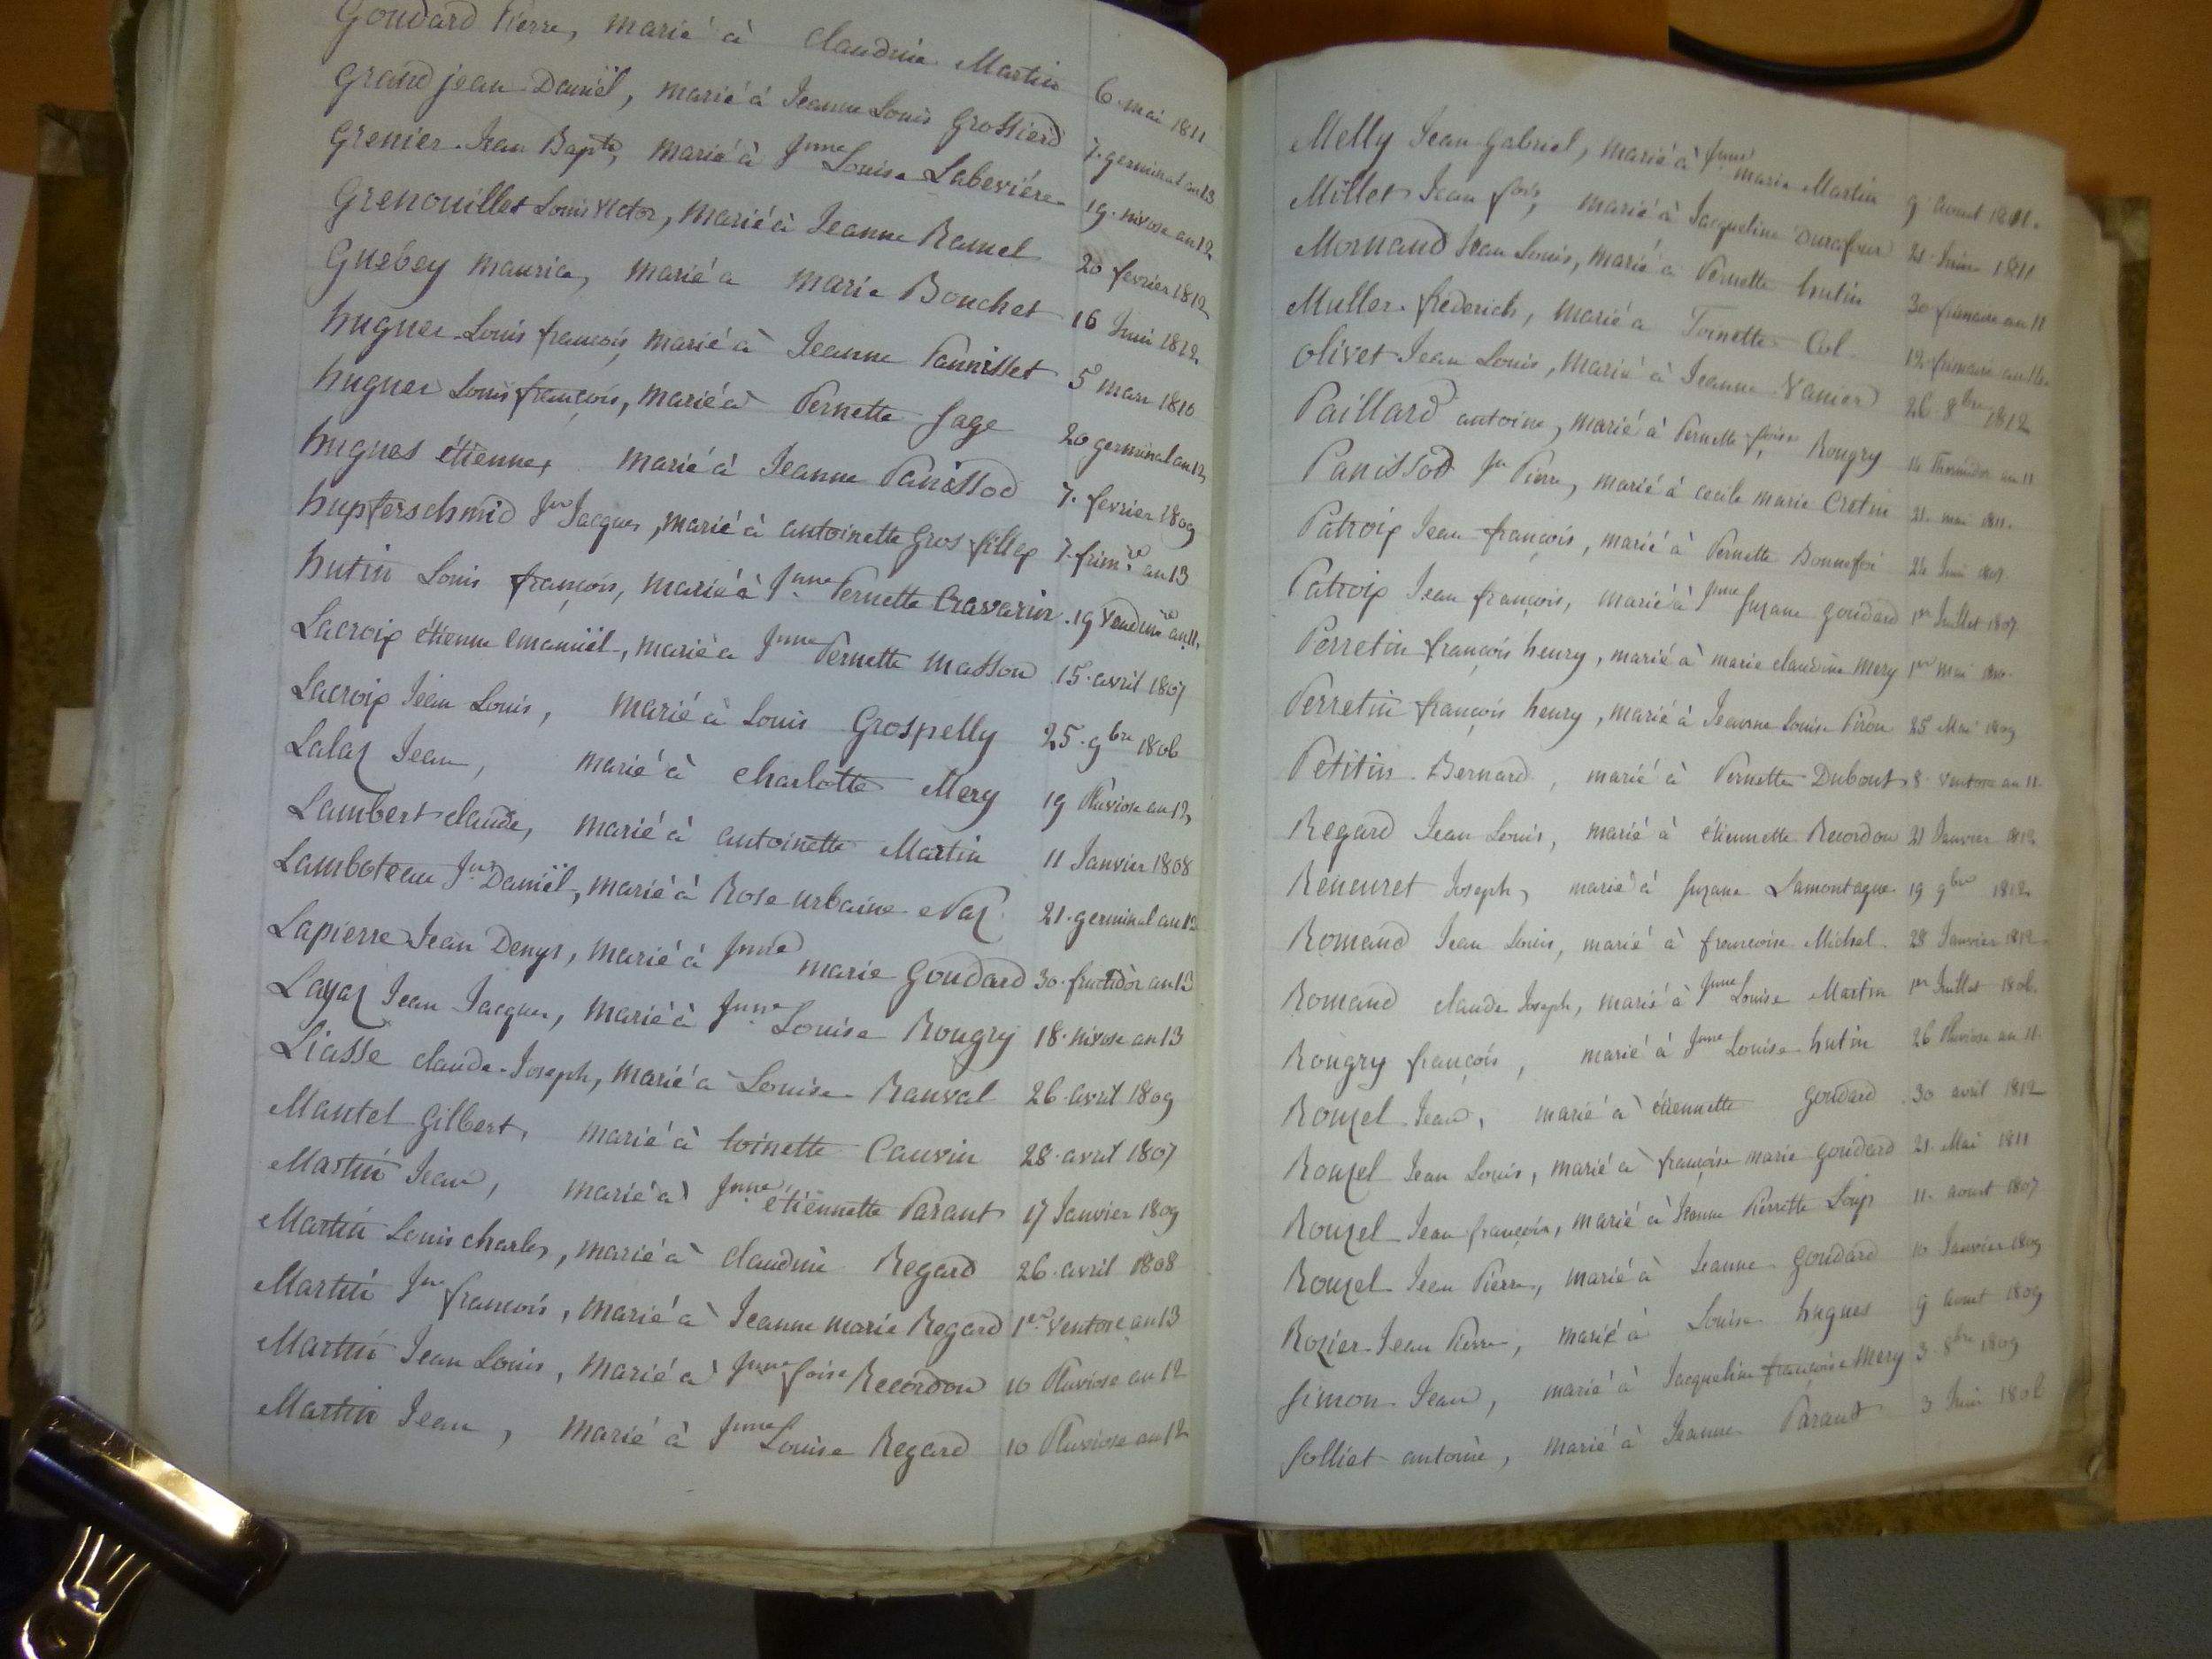 Goudard Pierre, marié à Claudine Martin 6 mai 1811
Grandjean Daniël, marié à Jeanne Louis Grossierd 7. germinal an 13
Grenier Jean Bapte, marié à Jnne Louise Labeviére 19. nivose an 12
Grenouillet Louis Victor, marié à Jeanne Ramel 20 fevrier 1812
Guebey maurice, marié a marie Bouchet 16 Juin 1812
hugues Louis françois, marié à Jeanne Pannisset 5 mars 1810
hugues Louis françois, marié à Pernette Sage 20 germinal an 12
hugues étienne, marié à Jeanne Panissod 7. fevrier 1809
hupferschmid Jn Jacques, marié à antoinette Gros-fillex 7. frimre an 13
hutin Louis françois, marié à Jnne Pernette Cravarin. 19 Vendmre an 11.
Lacroix étienne Emanuël, marié a Jnne Pernette Masson 15. avril 1807
Lacroix Jean Louis, marié à Louis Grospelly 25. 9bre 1806
Lalaz Jean, marié à charlotte Mery 19 Pluviose an 12
Lambert claude, marié à antoinette Martin 11 Janvier 1808
Lamboteau Jn Daniël, marié à Rose urbaine Naz 21. germinal an 12
Lapierre Jean Denys, marié à Jnne marie Goudard 30. fructidor an 13
Layaz Jean Jacques, marié à Jnne Louise Rougry 18. nivose an 13
Liasse claude-Joseph, marié à Louise Rauval 26. avril 1809
Mantel Gilbert, marié à toinette Cauvin 28. avril 1807
Martin Jean, marié à Jnne étiennette Parant 17 Janvier 1809
Martin Louis charles, marié à claudine Regard 26. avril 1808
Martin Jn françois, marié à Jeanne marie Regard 1er ventose an 13
Martin Jean Louis, marié à Jnne foise Recordon 10 Pluviose an 12
Martin Jean, marié à Jnne Louise Regard 10 Pluviose an 12
Melly Jean Gabriel, marié à Jnne marie Martin 9 aout 1811.
Millet Jean fois, marié à Jacqueline 21 Juin 1811
Mornand Jean Louis, marié à Pernette hutin 30 frimaire an 11
Muller frederich, marié a Toinette Col 12 frimaire an
olivet Jean Louis, marié à Jeanne Vanier 26 8bre 1812
Paillard antoine, marié à Pernette foise Rougry 14 Thermidor an 11
Panissod Jn Pierre, marié à cecile marie Cretin 21. mai 1811.
Patroix Jean françois, marié à Pernette Bonnefoi 24 Juin 1807.
Patroix Jean françois, marié à Jnne Suzane Goudard 1er Juillet 1807
Perretin françois henry, marié à marie claudine Mery 1er mai 1810.
Perretin françois henry, marié à Jeanne Louise Piron 25 Mai 1809
Petitin Bernard, marié à Pernette Dubout 8. ventose an 11.
Regard Jean Louis, marié à étiennette Recordon 21 Janvier 1812
Reneuret Joseph, marié à Suzane Lamontagne 19 9bre 1812
Romand Jean Louis, marié à francoise Michel 28 Janvier 1812
Romand claude Joseph, marié à Jnne Louise Martin 1er Juillet 1806.
Rougry françois, marié à Jnne Louise hutin 26 Pluviose an 11.
Rouzel Jean, marié à étiennette Goudard 30 avril 1812
Rouzel Jean Louis, marié à françoise marie Goudard 21. Mai 1811
Rouzel Jean françois, marié à Jeanne Pierrette Loup 11. aout 1807
Rouzel Jean Pierre, marié à Jeanne Goudard 10 Janvier 1809
Rozier Jean Pierre, marié à Louise hugues 9 aout 1809
Simon Jean, marié à Jacqueline françoise Mery 3. 8bre 1809
Solliet antoine, marié à Jeanne Parant 3 Juin 1806